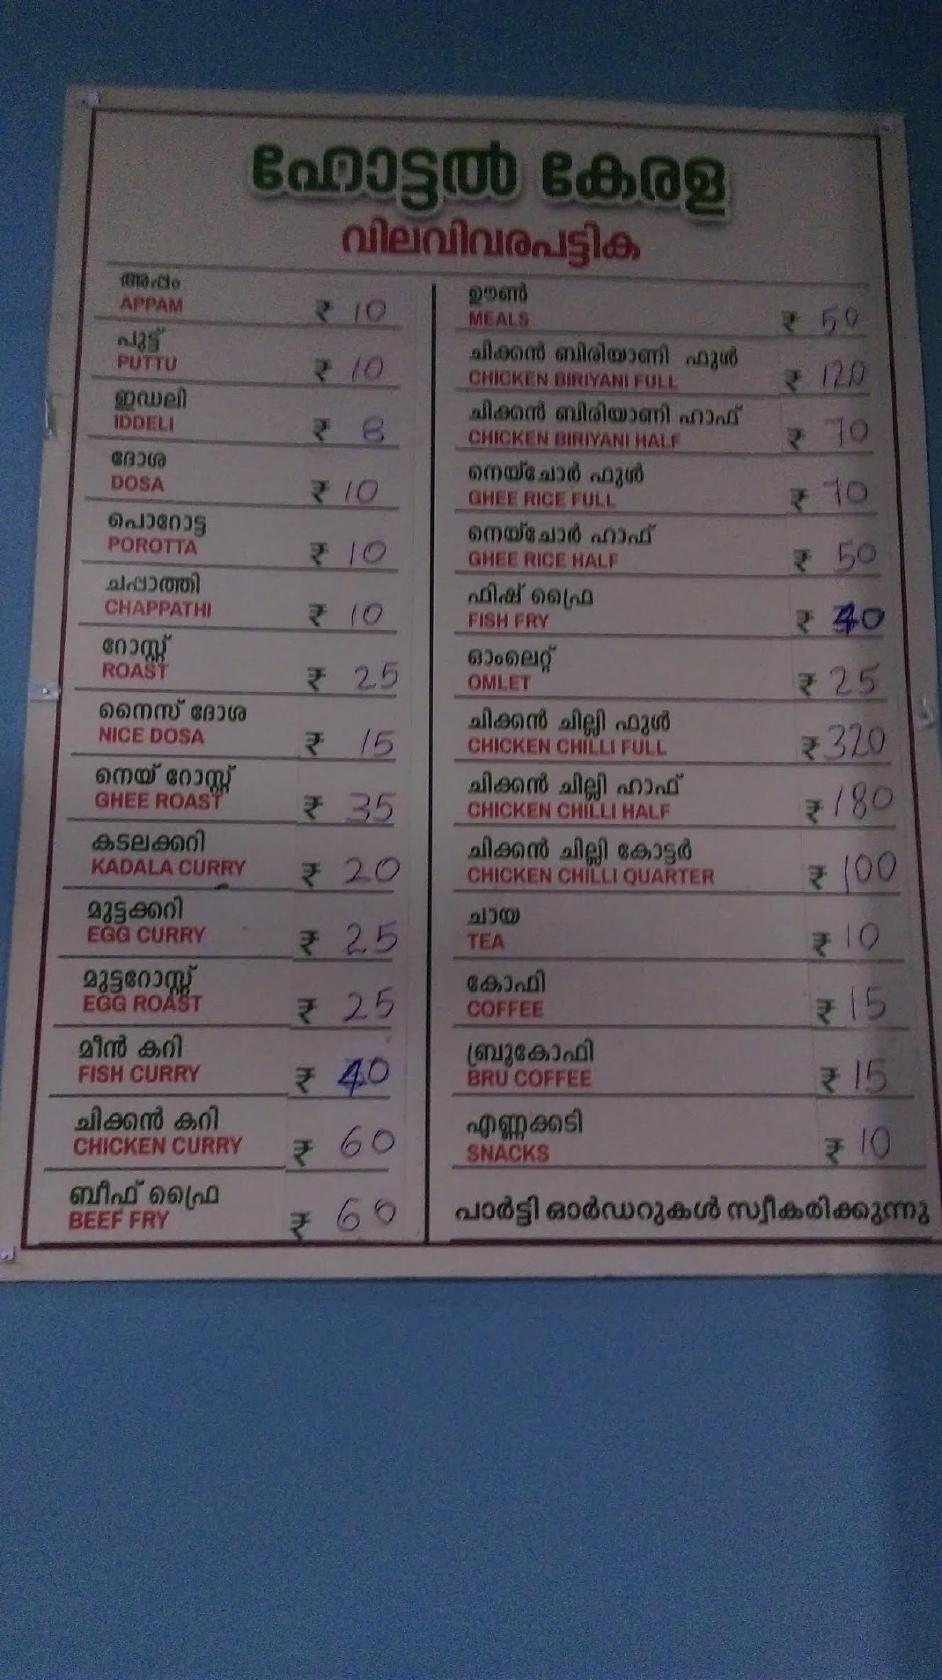 ഹോട്ടൽ കേരള
വിലവിവരപട്ടിക
അപ്പം
APPAM ₹ 10
പുട്ട്
PUTTU ₹ 10
ഇഡലി
IDDELI ₹ 8
ദോശ
DOSA ₹ 10
പൊറോട്ട
POROTTA ₹ 10
ചപ്പാത്തി
CHAPPATHI ₹ 10
റോസ്റ്റ്
ROAST ₹ 25
നൈസ് ദോശ
NICE DOSA ₹ 15
നെയ് റോസ്റ്റ്
GHEE ROAST ₹ 35
കടലക്കറി
KADALA CURRY ₹ 20
മുട്ടക്കറി
EGG CURRY ₹ 25
മുട്ടറോസ്റ്റ്
EGG ROAST ₹ 25
മീൻ കറി
FISH CURRY ₹ 40
ചിക്കൻ കറി
CHICKEN CURRY ₹ 60
ബീഫ് ഫ്രൈ
BEEF FRY ₹ 60
ഊൺ
MEALS ₹ 50
ചിക്കൻ ബിരിയാണി ഫുൾ
CHICKEN BIRIYANI FULL ₹ 120
ചിക്കൻ ബിരിയാണി ഹാഫ്
CHICKEN BIRIYANI HALF ₹ 70
നെയ്ചോർ ഫുൾ
GHEE RICE FULL ₹ 70
നെയ്ചോർ ഹാഫ്
GHEE RICE HALF ₹ 50
ഫിഷ് ഫ്രൈ
FISH FRY ₹ 40
ഓംലെറ്റ്
OMLET ₹ 25
ചിക്കൻ ചില്ലി ഫുൾ
CHICKEN CHILLI FULL ₹ 320
ചിക്കൻ ചില്ലി ഹാഫ്
CHICKEN CHILLI HALF ₹ 180
ചിക്കൻ ചില്ലി കോട്ടർ
CHICKEN CHILLI QUARTER ₹ 100
ചായ
TEA ₹ 10
കോഫി
COFFEE ₹ 15
ബ്രുകോഫി
BRU COFFEE ₹ 15
എണ്ണക്കടി
SNACKS ₹ 10
പാർട്ടി ഓർഡറുകൾ സ്വീകരിക്കുന്നു